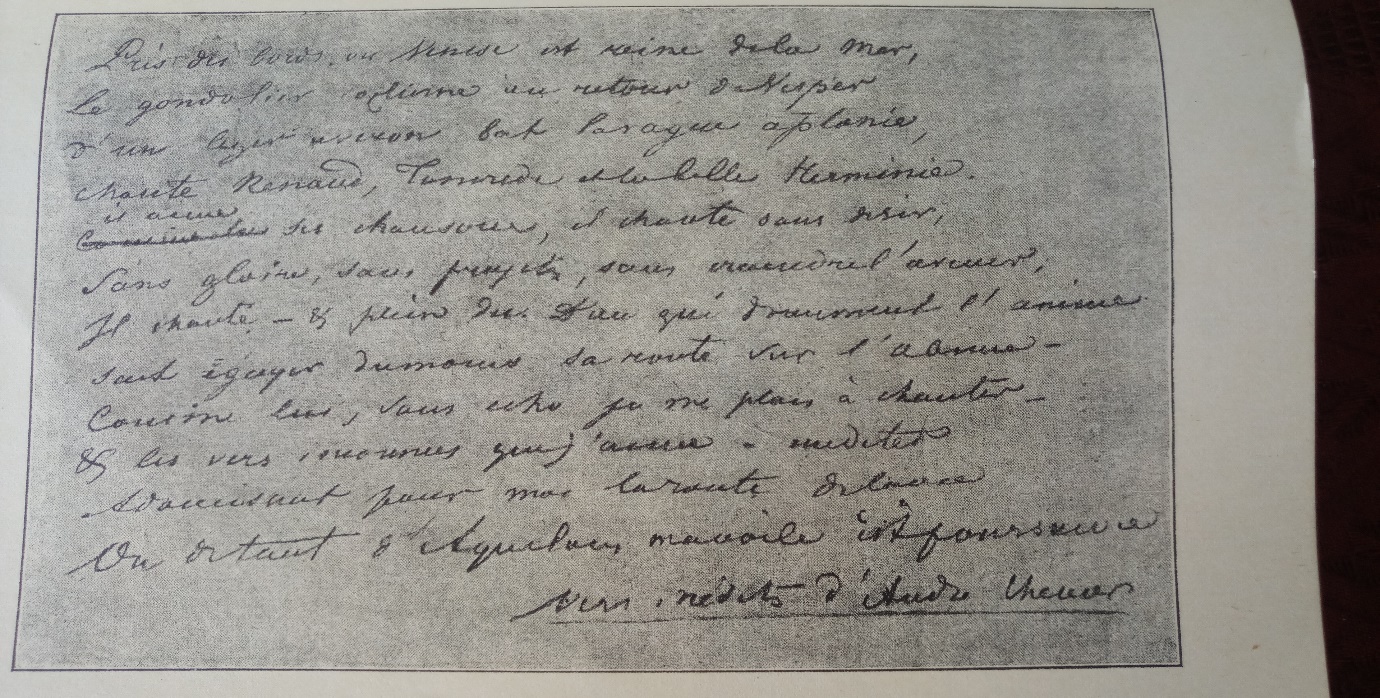 Près des bords où Venise est reine de la mer,
Le gondolier nocturne au retour de Vesper
d'un leger aviron bat la vague aplanie,
chante Renaud, Tancrede et la belle Herminie.
il aime
ses chansons, il chante sans desir,
Sans gloire, sans projets, sans craindre l'avenir,
Il chante – & plein du Dieu qui doucement l'anime
sait égayer du moins sa route sur l'abime –
Comme lui, sans echo je me plais à chanter –
& les vers inconnus que j'aime a mediter
Adoucissent pour moi la route de la vie
Ou de tant d'Aquilons ma voile est poursuivie
Vers inédits d'André Chenier